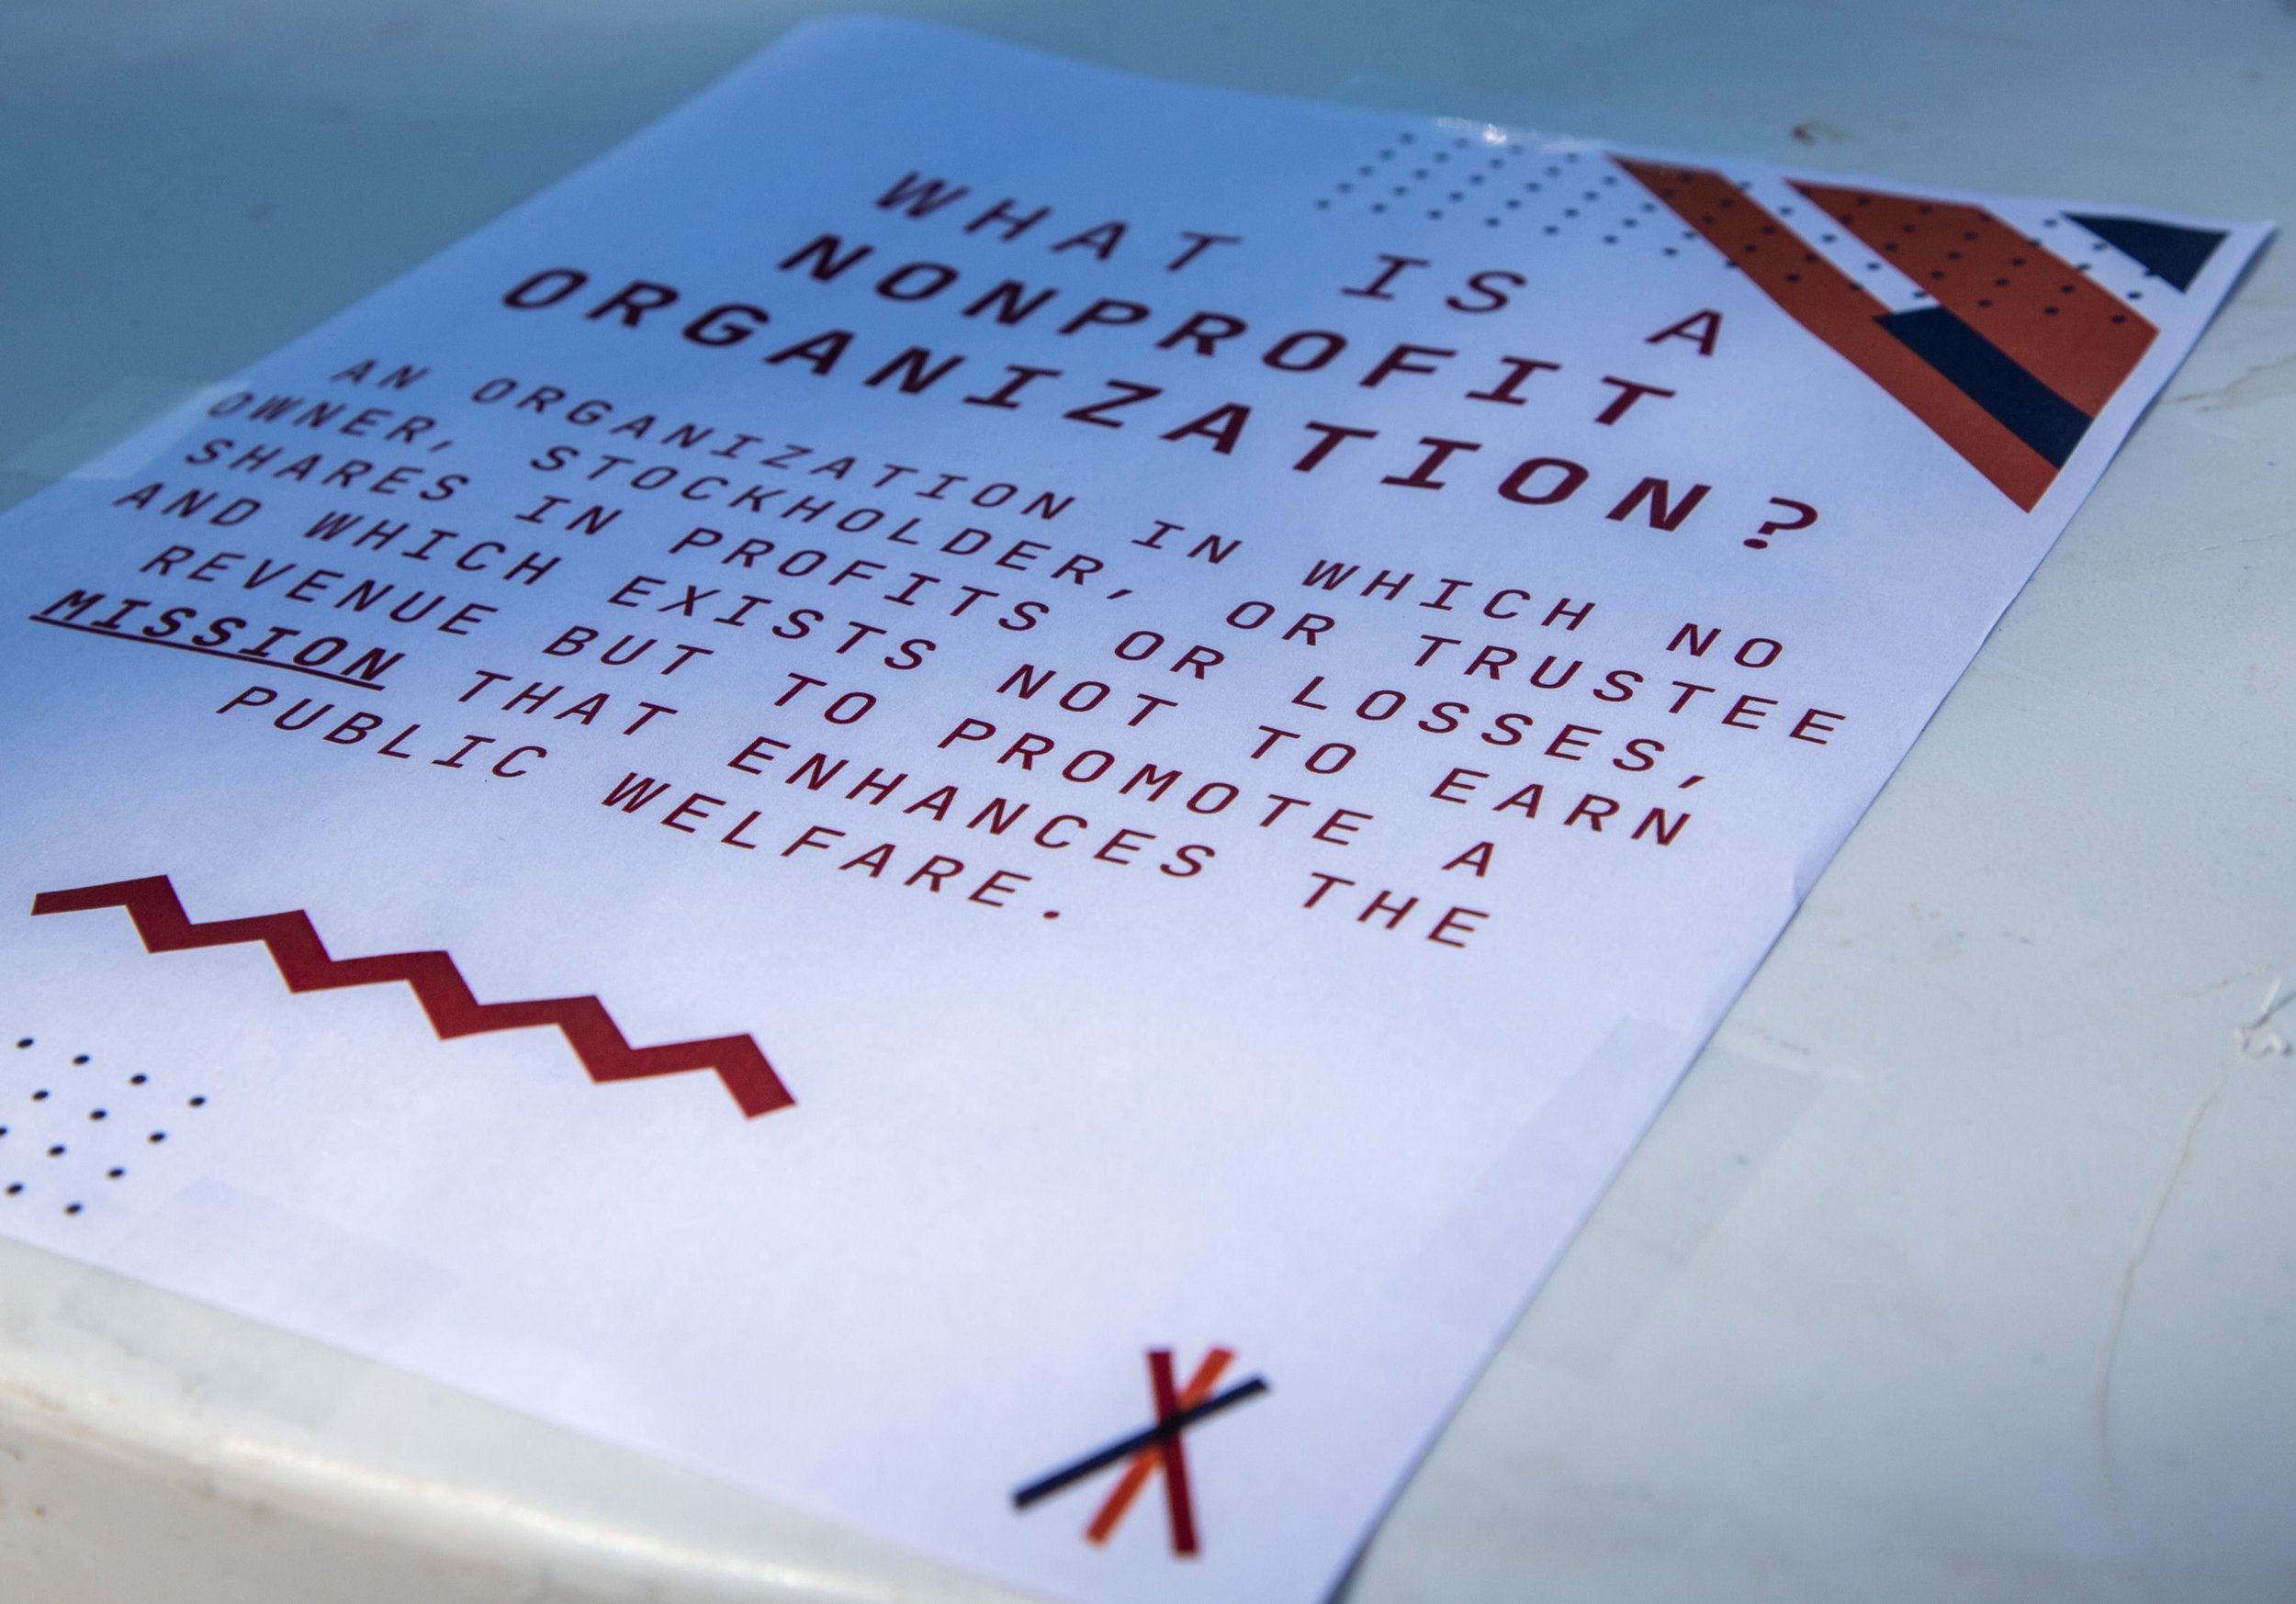 WHAT IS A
NONPROFIT
ORGANIZATION?
AN ORGANIZATION IN WHICH NO
OWNER, STOCKHOLDER, OR TRUSTEE
SHARES IN PROFITS OR LOSSES,
AND WHICH EXISTS NOT TO EARN
REVENUE BUT TO PROMOTE A
MISSION THAT ENHANCES THE
PUBLIC WELFARE.